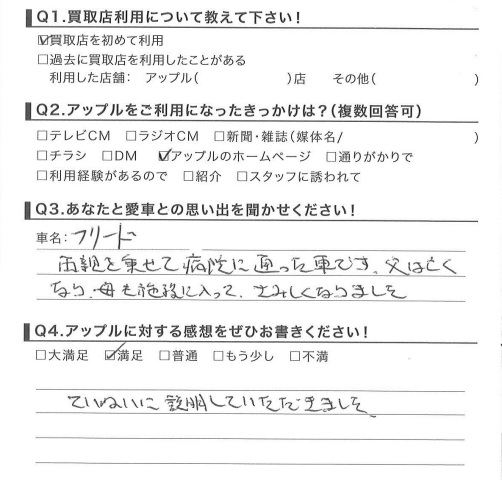 Q1.買取店利用について教えて下さい!
☑買取店を初めて利用
□過去に買取店を利用したことがある
利用した店舗: アップル( )店 その他( )
Q2.アップルをご利用になったきっかけは?(複数回答可)
□テレビCM □ラジオCM □新聞・雑誌(媒体名/ )
□チラシ □DM ☑アップルのホームページ □通りがかりで
□利用経験があるので □紹介 □スタッフに誘われて
Q3.あなたと愛車との思い出を聞かせください!
車名:フリード
両親を乗せて病院に通った車です。父は亡く
なり、母も施設に入って、さみしくなりました
Q4.アップルに対する感想をぜひお書きください!
□大満足 ☑満足 □普通 □もう少し □不満
ていねいに説明していただきました。